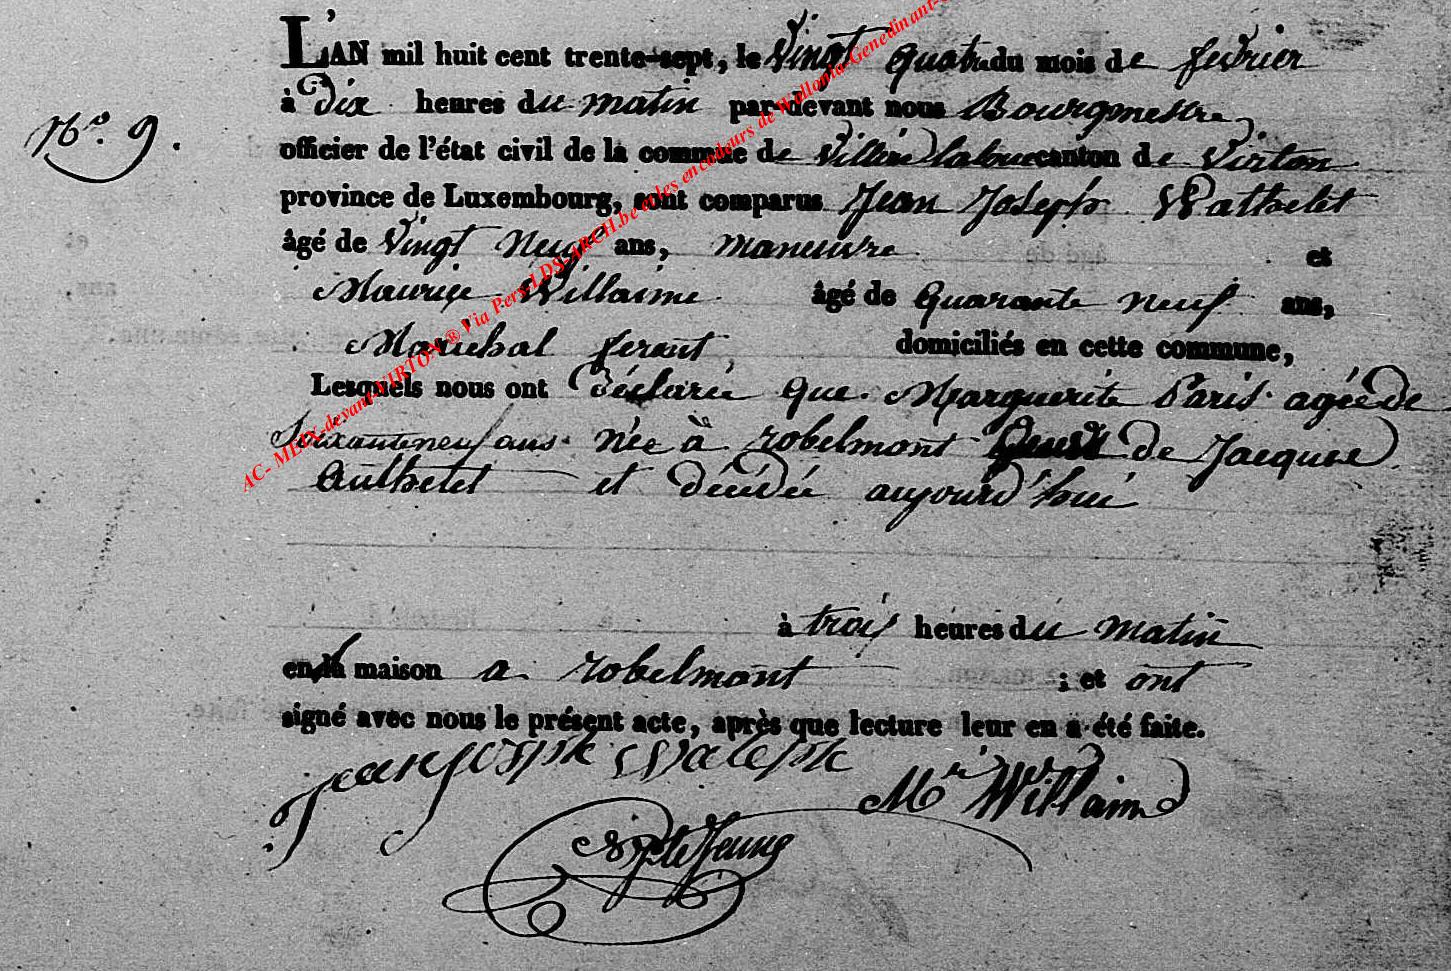 L'AN mil huit cent trente-sept, le Vingt quatre du mois de fevrier
à Dix heures du matin par-devant nous Bourgmestre
N.º 9.
officier de l'état civil de la commune de Villers la loue canton de Virton
province de Luxembourg, sont comparus Jean Joseph Wathelet
âgé de Vingt Neuf ans, maneuvre et
Maurice Willaime âgé de quarante neuf ans,
Maréchal ferant domiciliés en cette commune,
Lesquels nous ont déclaré que Marguerite Paris agée de
Soixante neuf ans née à robelmont de Jacques
Authelet et décédée aujourd'hui
à trois heures du matin
en la maison a robelmont ; et ont
signé avec nous le présent acte, après que lecture leur en a été faite.
jean josph
Mr Willaim
AC- MEIX-devant-VIRTON ® Via Pers-LDS-ARCH.be et les encodeurs de Wallonia-Genedinant-